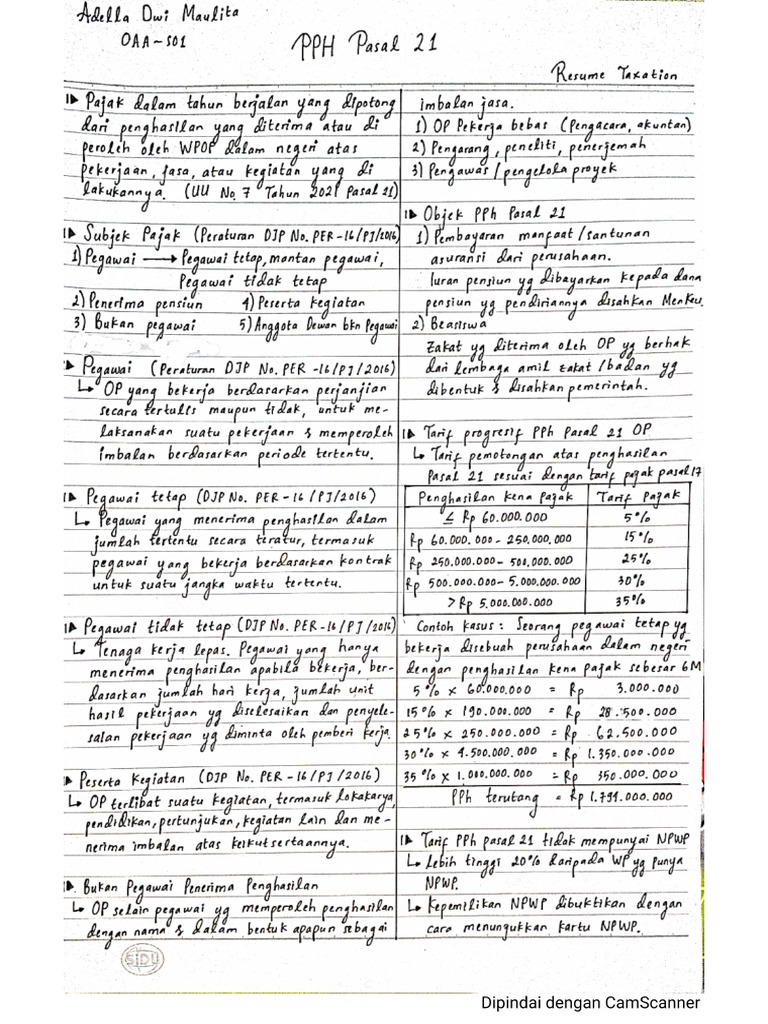 Adella Dwi Maulita
OAA-S01
PPH Pasal 21
Resume Taxation
Pajak dalam tahun berjalan yang dipotong
dari penghasilan yang diterima atau di
peroleh oleh WPOP dalam negeri atas
pekerjaan, jasa, atau kegiatan yang di
lakukannya. (UU No 7 Tahun 2021 Pasal 21)
Subjek Pajak (Peraturan DJP No. PER-16/PJ/2016)
1) Pegawai → Pegawai tetap, mantan pegawai,
Pegawai tidak tetap
2) Penerima pensiun 4) Peserta kegiatan
3) Bukan pegawai 5) Anggota Dewan bkn Pegawai
Pegawai (Peraturan DJP No. PER-16/PJ/2016)
↳ OP yang bekerja berdasarkan perjanjian
secara tertulis maupun tidak, untuk me-
laksanakan suatu pekerjaan & memperoleh
imbalan berdasarkan periode tertentu.
Pegawai tetap (DJP No. PER-16/PJ/2016)
↳ Pegawai yang menerima penghasilan dalam
jumlah tertentu secara teratur, termasuk
pegawai yang bekerja berdasarkan kontrak
untuk suatu jangka waktu tertentu.
Pegawai tidak tetap (DJP No. PER-16/PJ/2016)
↳ Tenaga kerja lepas. Pegawai yang hanya
menerima penghasilan apabila bekerja, ber-
dasarkan jumlah hari kerja, jumlah unit
hasil pekerjaan yg diselesaikan dan penyele-
saian pekerjaan yg diminta oleh pemberi kerja.
Peserta Kegiatan (DJP No. PER-16/PJ/2016)
↳ OP terlibat suatu kegiatan, termasuk lokakarya,
pendidikan, pertunjukan, kegiatan lain dan me-
nerima imbalan atas keikutsertaannya.
Bukan Pegawai Penerima Penghasilan
↳ OP selain pegawai yg memperoleh penghasilan
dengan nama & dalam bentuk apapun sebagai
imbalan jasa.
1) OP Pekerja bebas (Pengacara, akuntan)
2) Pengarang, peneliti, penerjemah
3) Pengawas/pengelola proyek
Objek PPh Pasal 21
1) Pembayaran manfaat/santunan
asuransi dari perusahaan.
Iuran pensiun yg dibayarkan kepada dana
pensiun yg pendiriannya disahkan Menkeu.
2) Beasiswa
Zakat yg diterima oleh OP yg berhak
dari lembaga amil zakat/badan yg
dibentuk & disahkan pemerintah.
Tarif progresif PPh Pasal 21 OP
↳ Tarif pemotongan atas penghasilan
Pasal 21 sesuai dengan tarif pajak pasal 17
Penghasilan Kena Pajak Tarif Pajak
≤ Rp 60.000.000 5%
Rp 60.000.000 - 250.000.000 15%
Rp 250.000.000 - 500.000.000 25%
Rp 500.000.000 - 5.000.000.000 30%
> Rp 5.000.000.000 35%
Contoh kasus : Seorang pegawai tetap yg
bekerja disebuah perusahaan dalam negeri
dengan penghasilan kena pajak sebesar 6M
5% x 60.000.000 = Rp 3.000.000
15% x 190.000.000 = Rp 28.500.000
25% x 250.000.000 = Rp 62.500.000
30% x 4.500.000.000 = Rp 1.350.000.000
35% x 1.000.000.000 = Rp 350.000.000
PPh terutang = Rp 1.791.000.000
Tarif PPh pasal 21 tidak mempunyai NPWP
↳ Lebih tinggi 20% daripada WP yg punya
NPWP.
↳ Kepemilikan NPWP dibuktikan dengan
cara menunjukkan kartu NPWP.
SIDU
Dipindai dengan CamScanner